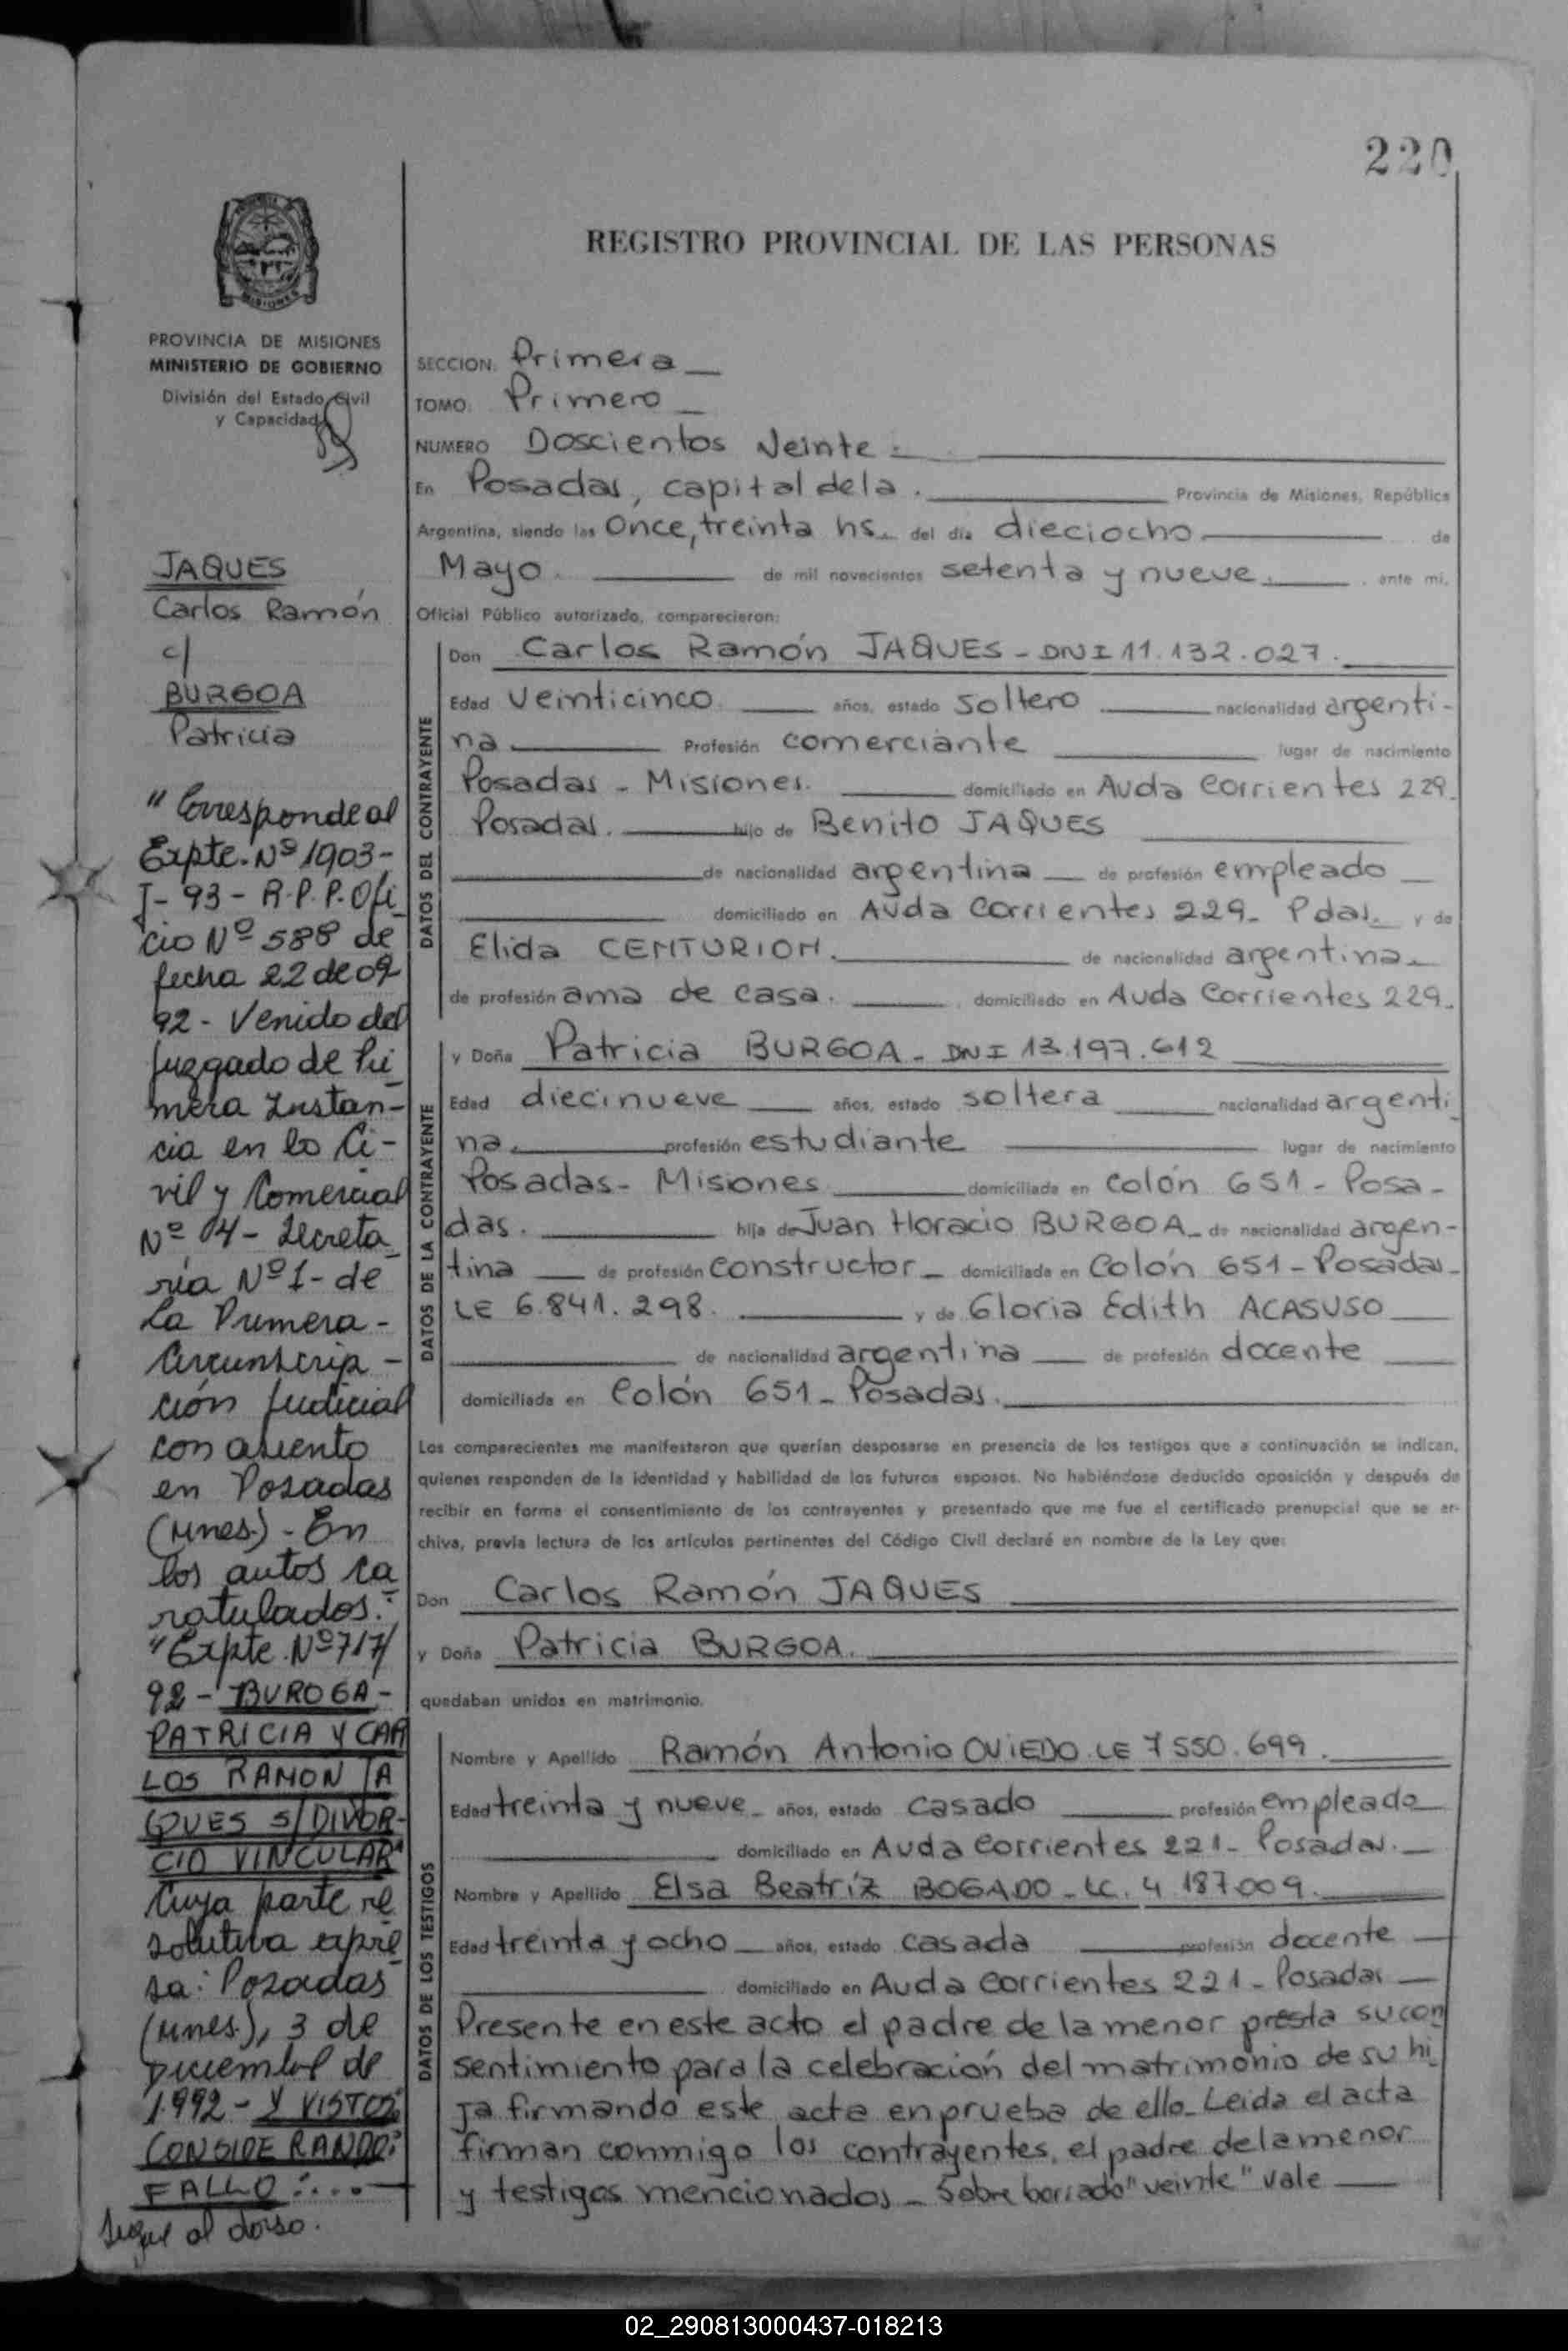 220
REGISTRO PROVINCIAL DE LAS PERSONAS
MISIONES
PROVINCIA DE MISIONES
MINISTERIO DE GOBIERNO
División del Estado Civil
y Capacidad
JAQUES
Carlos Ramón
c/
BURGOA
Patricia
"Corresponde al
Expte. Nº 1903-
J-93- R.P.P. Ofi
cio Nº 588 de
fecha 22 de 09
92- Venido del
Juzgado de Pri
mera Instan-
cia en lo Ci-
vil y Comercial
Nº 04- Secreta
ria Nº 1- de
la Primera-
Circunscrip-
ción Judicial
con asiento
en Posadas
(Mnes.)- En
los autos ca
ratulados:
"Expte. Nº 717/
92- BUROGA-
PATRICIA Y CAR
LOS RAMON JA
QUES S/DIVOR-
CIO VINCULAR"
Cuya parte re
solutiva expre
sa: Posadas
(Mnes.), 3 de
Diciembre de
1.992- Y VISTOS:
CONSIDERANDO:
FALLO:....
Sigue al dorso.
SECCION: Primera
TOMO: Primero
NUMERO Doscientos Veinte.
En Posadas, capital de la. Provincia de Misiones, República
Argentina, siendo las Once, treinta hs. del día dieciocho de
Mayo. de mil novecientos setenta y nueve. ante mi,
Oficial Público autorizado, comparecieron:
DATOS DEL CONTRAYENTE
Don Carlos Ramón JAQUES - DNI 11.132.027.
Edad veinticinco. años, estado soltero nacionalidad argenti-
na Profesión comerciante lugar de nacimiento
Posadas - Misiones. domiciliado en Avda Corrientes 229.
Posadas. hijo de Benito JAQUES
de nacionalidad argentina de profesión empleado
domiciliado en Avda Corrientes 229- Pdas. y de
Elida CENTURION. de nacionalidad argentina
de profesión ama de casa. domiciliado en Avda Corrientes 229.
DATOS DE LA CONTRAYENTE
y Doña Patricia BURGOA - DNI 13.197.612
Edad diecinueve años, estado soltera nacionalidad argenti
na. profesión estudiante lugar de nacimiento
Posadas- Misiones domiciliada en Colón 651 - Posa-
das. hija de Juan Horacio BURGOA de nacionalidad argen-
tina de profesión constructor domiciliada en Colón 651 - Posadas-
LE 6.841.298. y de Gloria Edith ACASUSO
de nacionalidad argentina de profesión docente
domiciliada en Colón 651 - Posadas.
Los comparecientes me manifestaron que querían desposarse en presencia de los testigos que a continuación se indican,
quienes responden de la identidad y habilidad de los futuros esposos. No habiéndose deducido oposición y después de
recibir en forma el consentimiento de los contrayentes y presentado que me fue el certificado prenupcial que se ar-
chiva, previa lectura de los artículos pertinentes del Código Civil declaré en nombre de la Ley que:
Don Carlos Ramón JAQUES
y Doña Patricia BURGOA.
quedaban unidos en matrimonio.
DATOS DE LOS TESTIGOS
Nombre y Apellido Ramón Antonio OVIEDO LE 7 550.699.
Edad treinta y nueve años, estado casado profesión empleado
domiciliado en Avda Corrientes 221 - Posadas.
Nombre y Apellido Elsa Beatríz BOGADO - LC. 4 187.009.
Edad treinta y ocho años, estado casada profesión docente
domiciliado en Avda Corrientes 221 - Posadas
Presente en este acto el padre de la menor presta su con
sentimiento para la celebración del matrimonio de su hi
ja firmando este acta en prueba de ello. Leida el acta
firman conmigo los contrayentes, el padre de la menor
y testigos mencionados - Sobre borrado "veinte" vale
02_290813000437-018213